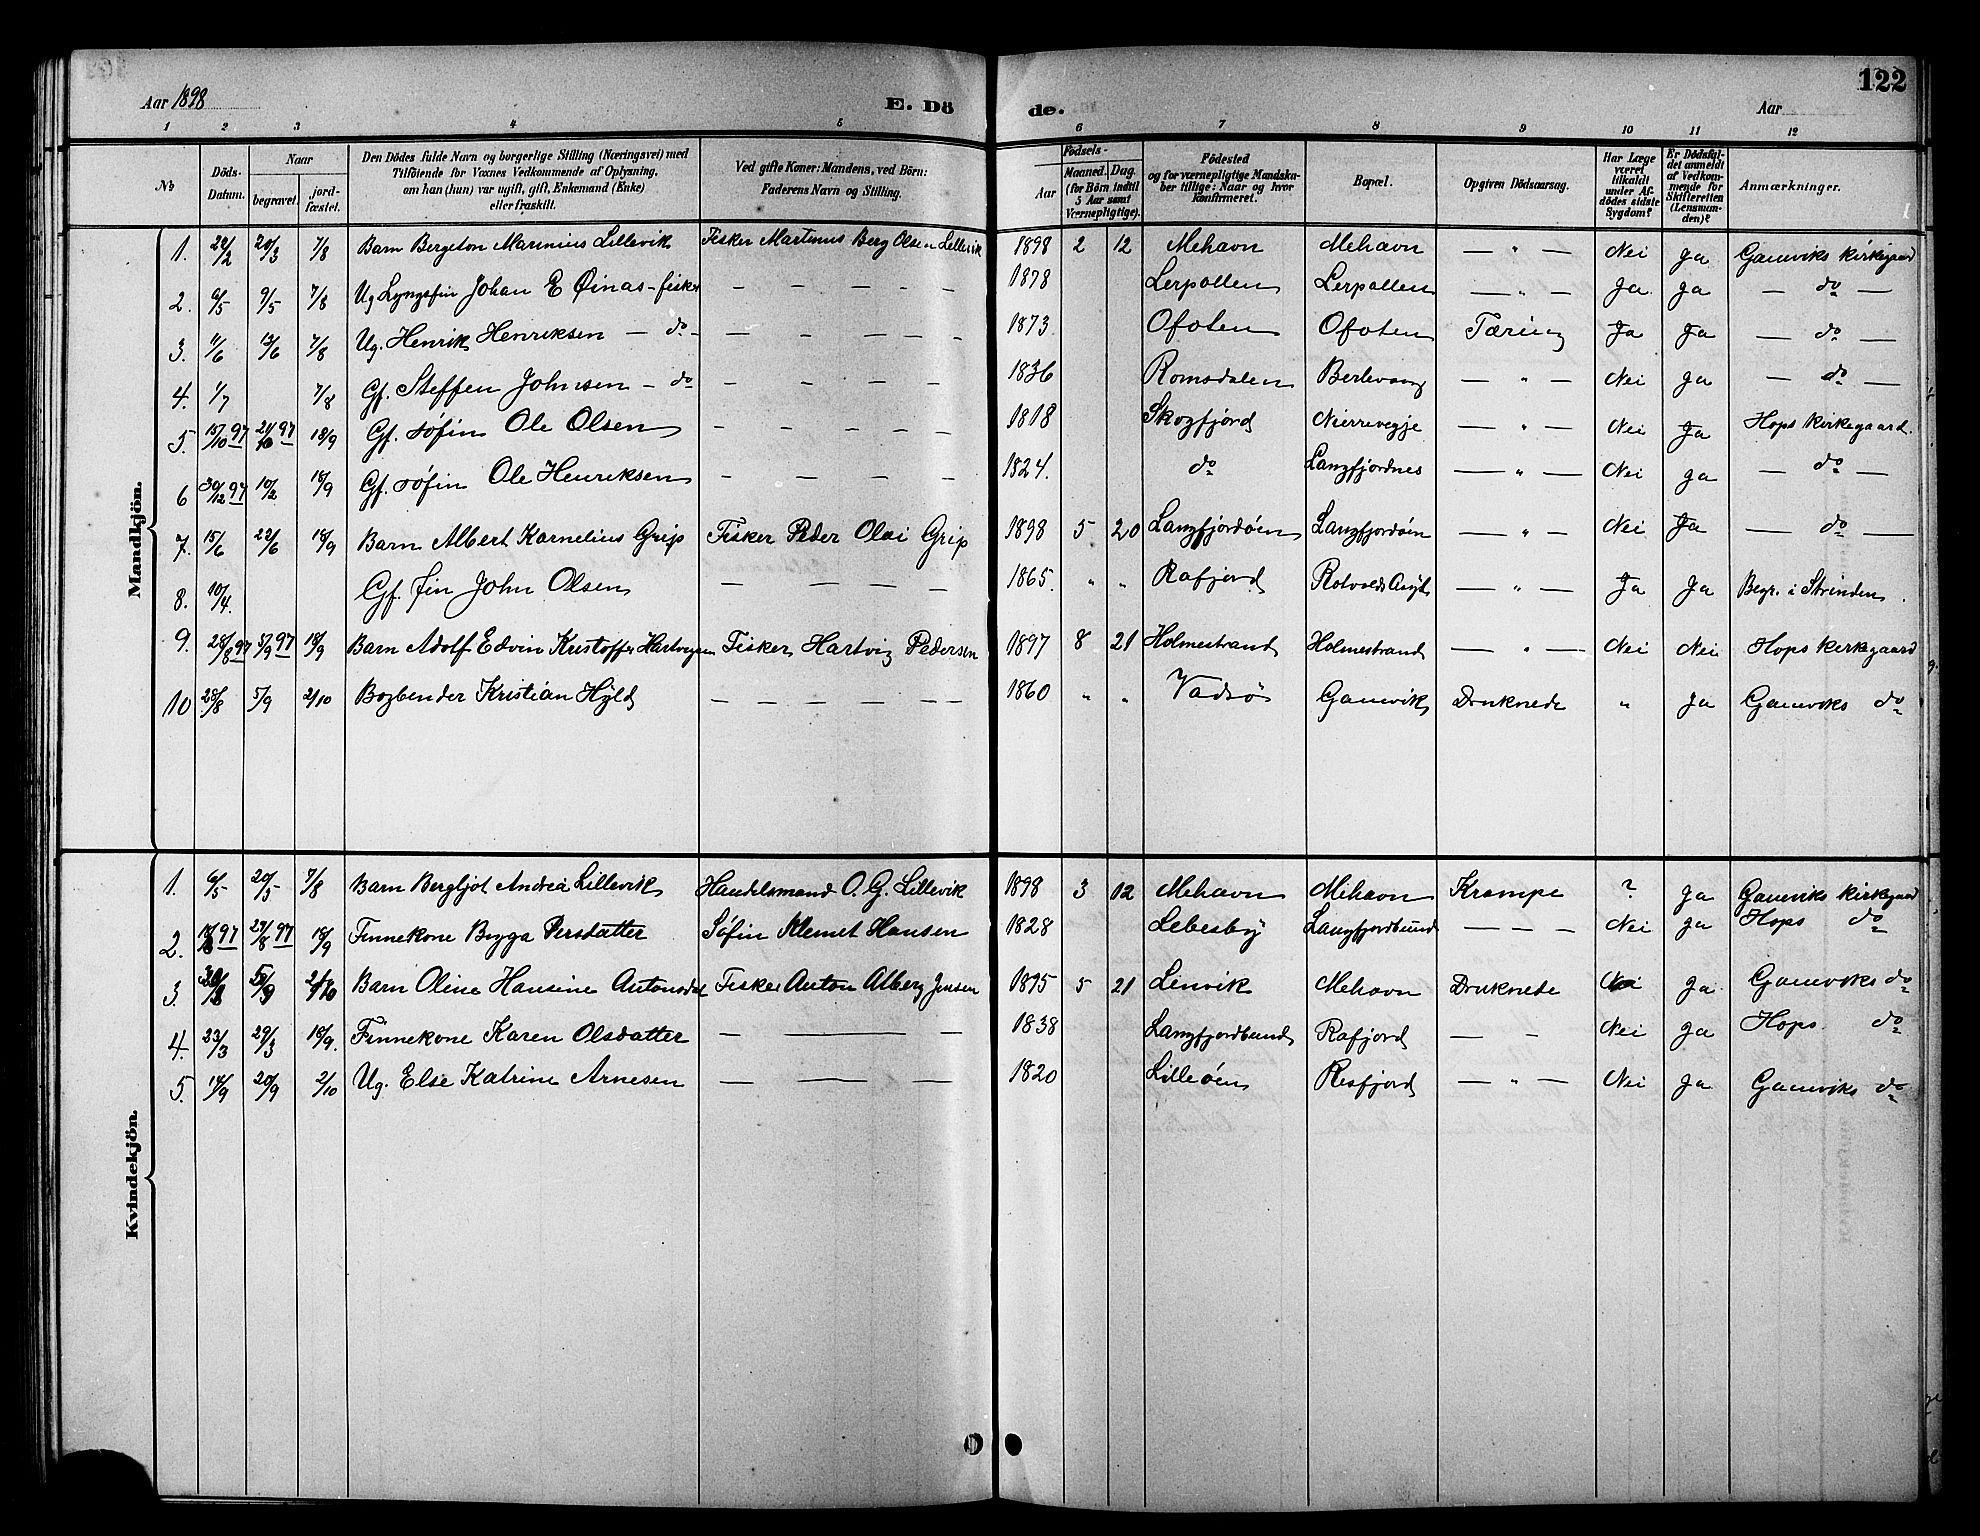 122
Aar 1898 E. Dö de. Aar
1 2 3 4 5 6 7 8 9 10 11 12
No Döds-Datum. Naar begravet. jord-fæstet. Den Dödes fulde Navn og borgerlige Stilling (Næringsvei) med Tilföiende for Voxnes Vedkommende af Oplysning, om han (hun) var ugift, gift, Enkemand (Enke) eller fraskilt. Ved gifte Koner: Mandens, ved Börn: Faderens Navn og Stilling. Födsels- Aar Maaned. Dag. (for Börn indtil 5 Aar samt Værnepligtige). Födested og for værnepligtige Mandskaber tillige: Naar og hvor konfirmeret. Bopæl. Opgiven Dödsaarsag. Har Læge været tilkaldt under Afdödes sidste Sygdom? Er Dödsfaldet anmeldt af Vedkommende for Skifteretten (Lensmanden)? Anmærkninger.
Mandkjön.
1. 22/2 20/3 7/8 Barn Bergeton Marinius Lillevik Fisker Martinus Berg Olsen Lillevik 1898 2 12 Mehavn Mehavn — " — Nei Ja Gamviks kirkegaard
2. 6/5 9/5 7/8 Ug Lyngsfin Johan E Øinas - fisker — — — — — 1878 Lerpollen Lerpollen — " — Ja Ja — do —
3. 11/6 13/6 7/8 Ug. Henrik Henriksen — do - — — — — — 1873 Ofoten Ofoten Tæring Ja Ja — do —
4. 1/7 7/8 Gf. Steffen Johnsen - do — — — — 1836 Romsdalen Berlevaag — " — Nei Ja — do —
5. 15/10 97 21/10 97 18/9 Gf. søfin Ole Olsen — — — — — 1818 Skogfjord Nierrevegje — " — Nei Ja Hops kirkegaard.
6 30/12 97 10/2 18/9 Gf. søfin Ole Henriksen — — — — 1824. do Langfjordnes — " — Nei Ja — do —
7. 15/6 22/6 18/9 Barn Albert Kornelius Grip Fisker Peder Olai Grip 1898 5 20 Langfjordøen Langfjordøen — " — Nei Ja — do —
8. 10/4. Gf. fin John Olsen — — — — 1865. " " Rafjord Rotvolds Asyl — " — Ja Ja Begr. i Strinden.
9. 28/8 97 5/9 97 18/9 Barn Adolf Edvin Kristoffer Hartvigsen Fisker Hartvig Pedersen 1897 8 21 Holmestrand Holmestrand — " — Nei Nei Hops kirkegaard
10 28/8 5/9 2/10 Bogbender Kristian Hyld — — — — — — 1860 " " Vadsø Gamvik Druknede " Ja Gamviks do
Kvindekjön.
1. 6/5 20/5 7/8 Barn Bergljot Andrea Lillevik Handelsmand O. G. Lillevik 1898 3 12 Mehavn Mehavn Krampe ? Ja Gamviks kirkegaard
2. 97 27/8 97 18/9 Finnekone Bigga Persdatter Søfin Klemet Hansen 1828 Lebesby Langfjordbund — — — Nei Ja Hops do
3. 5/9 2/10 Barn Oline Hansine Antonsdat Fisker Anton Alberg Jensen 1895 5 21 Lenvik Mehavn Druknede Nei Ja Gamviks do
4. 23/3 29/3 18/9. Finnekone Karen Olsdatter — — — 1838 Langfjordbund Rafjord — — Nei Ja Hops. do
5. 14/9 20/9 2/10 Ug. Else Katrine Arnesen — — — 1820 Lilleøen Risfjord — " — Nei Ja Gamviks do